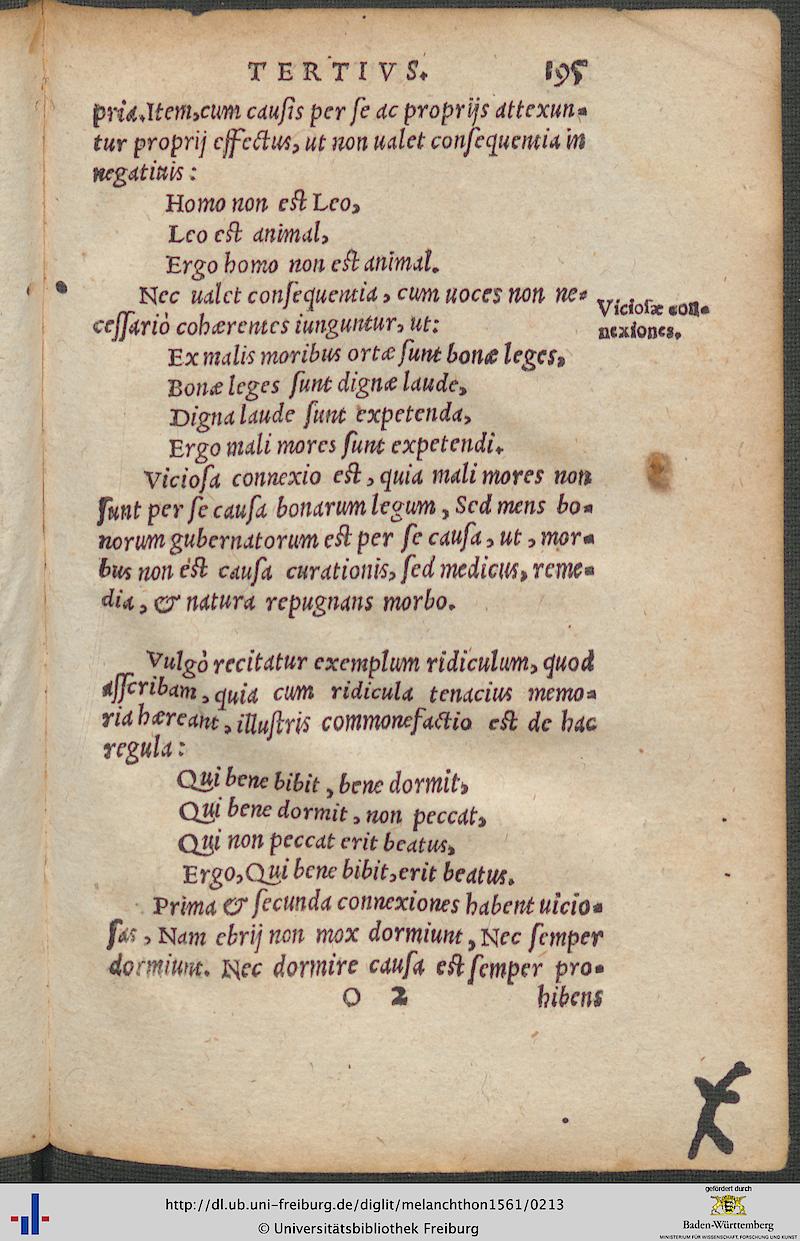 TERTIVS. 195
pria. Item, cum causis per se ac proprijs attexun-
tur proprij effectus, ut non ualet consequentia in
negatiuis:
Homo non est Leo,
Leo est animal,
Ergo homo non est animal.
Nec ualet consequentia, cum uoces non ne-
cessariò cohærentes iunguntur, ut:
Viciosæ con-
nexiones.
Ex malis moribus ortæ sunt bonæ leges,
Bonæ leges sunt dignæ laude,
Digna laude sunt expetenda,
Ergo mali mores sunt expetendi.
Viciosa connexio est, quia mali mores non
sunt per se causa bonarum legum, Sed mens bo-
norum gubernatorum est per se causa, ut, mor-
bus non est causa curationis, sed medicus, reme-
dia, & natura repugnans morbo.
Vulgò recitatur exemplum ridiculum, quod
asscribam, quia cum ridicula tenacius memo-
ria hæreant, illustris commonefactio est de hac
regula:
Qui bene bibit, bene dormit,
Qui bene dormit, non peccat,
Qui non peccat erit beatus,
Ergo, Qui bene bibit, erit beatus.
Prima & secunda connexiones habent uicio-
sas, Nam ebrij non mox dormiunt, Nec semper
dormiunt. Nec dormire causa est semper pro-
O 2 hibens
http://dl.ub.uni-freiburg.de/diglit/melanchthon1561/0213
© Universitätsbibliothek Freiburg
gefördert durch
Baden-Württemberg
MINISTERIUM FÜR WISSENSCHAFT, FORSCHUNG UND KUNST